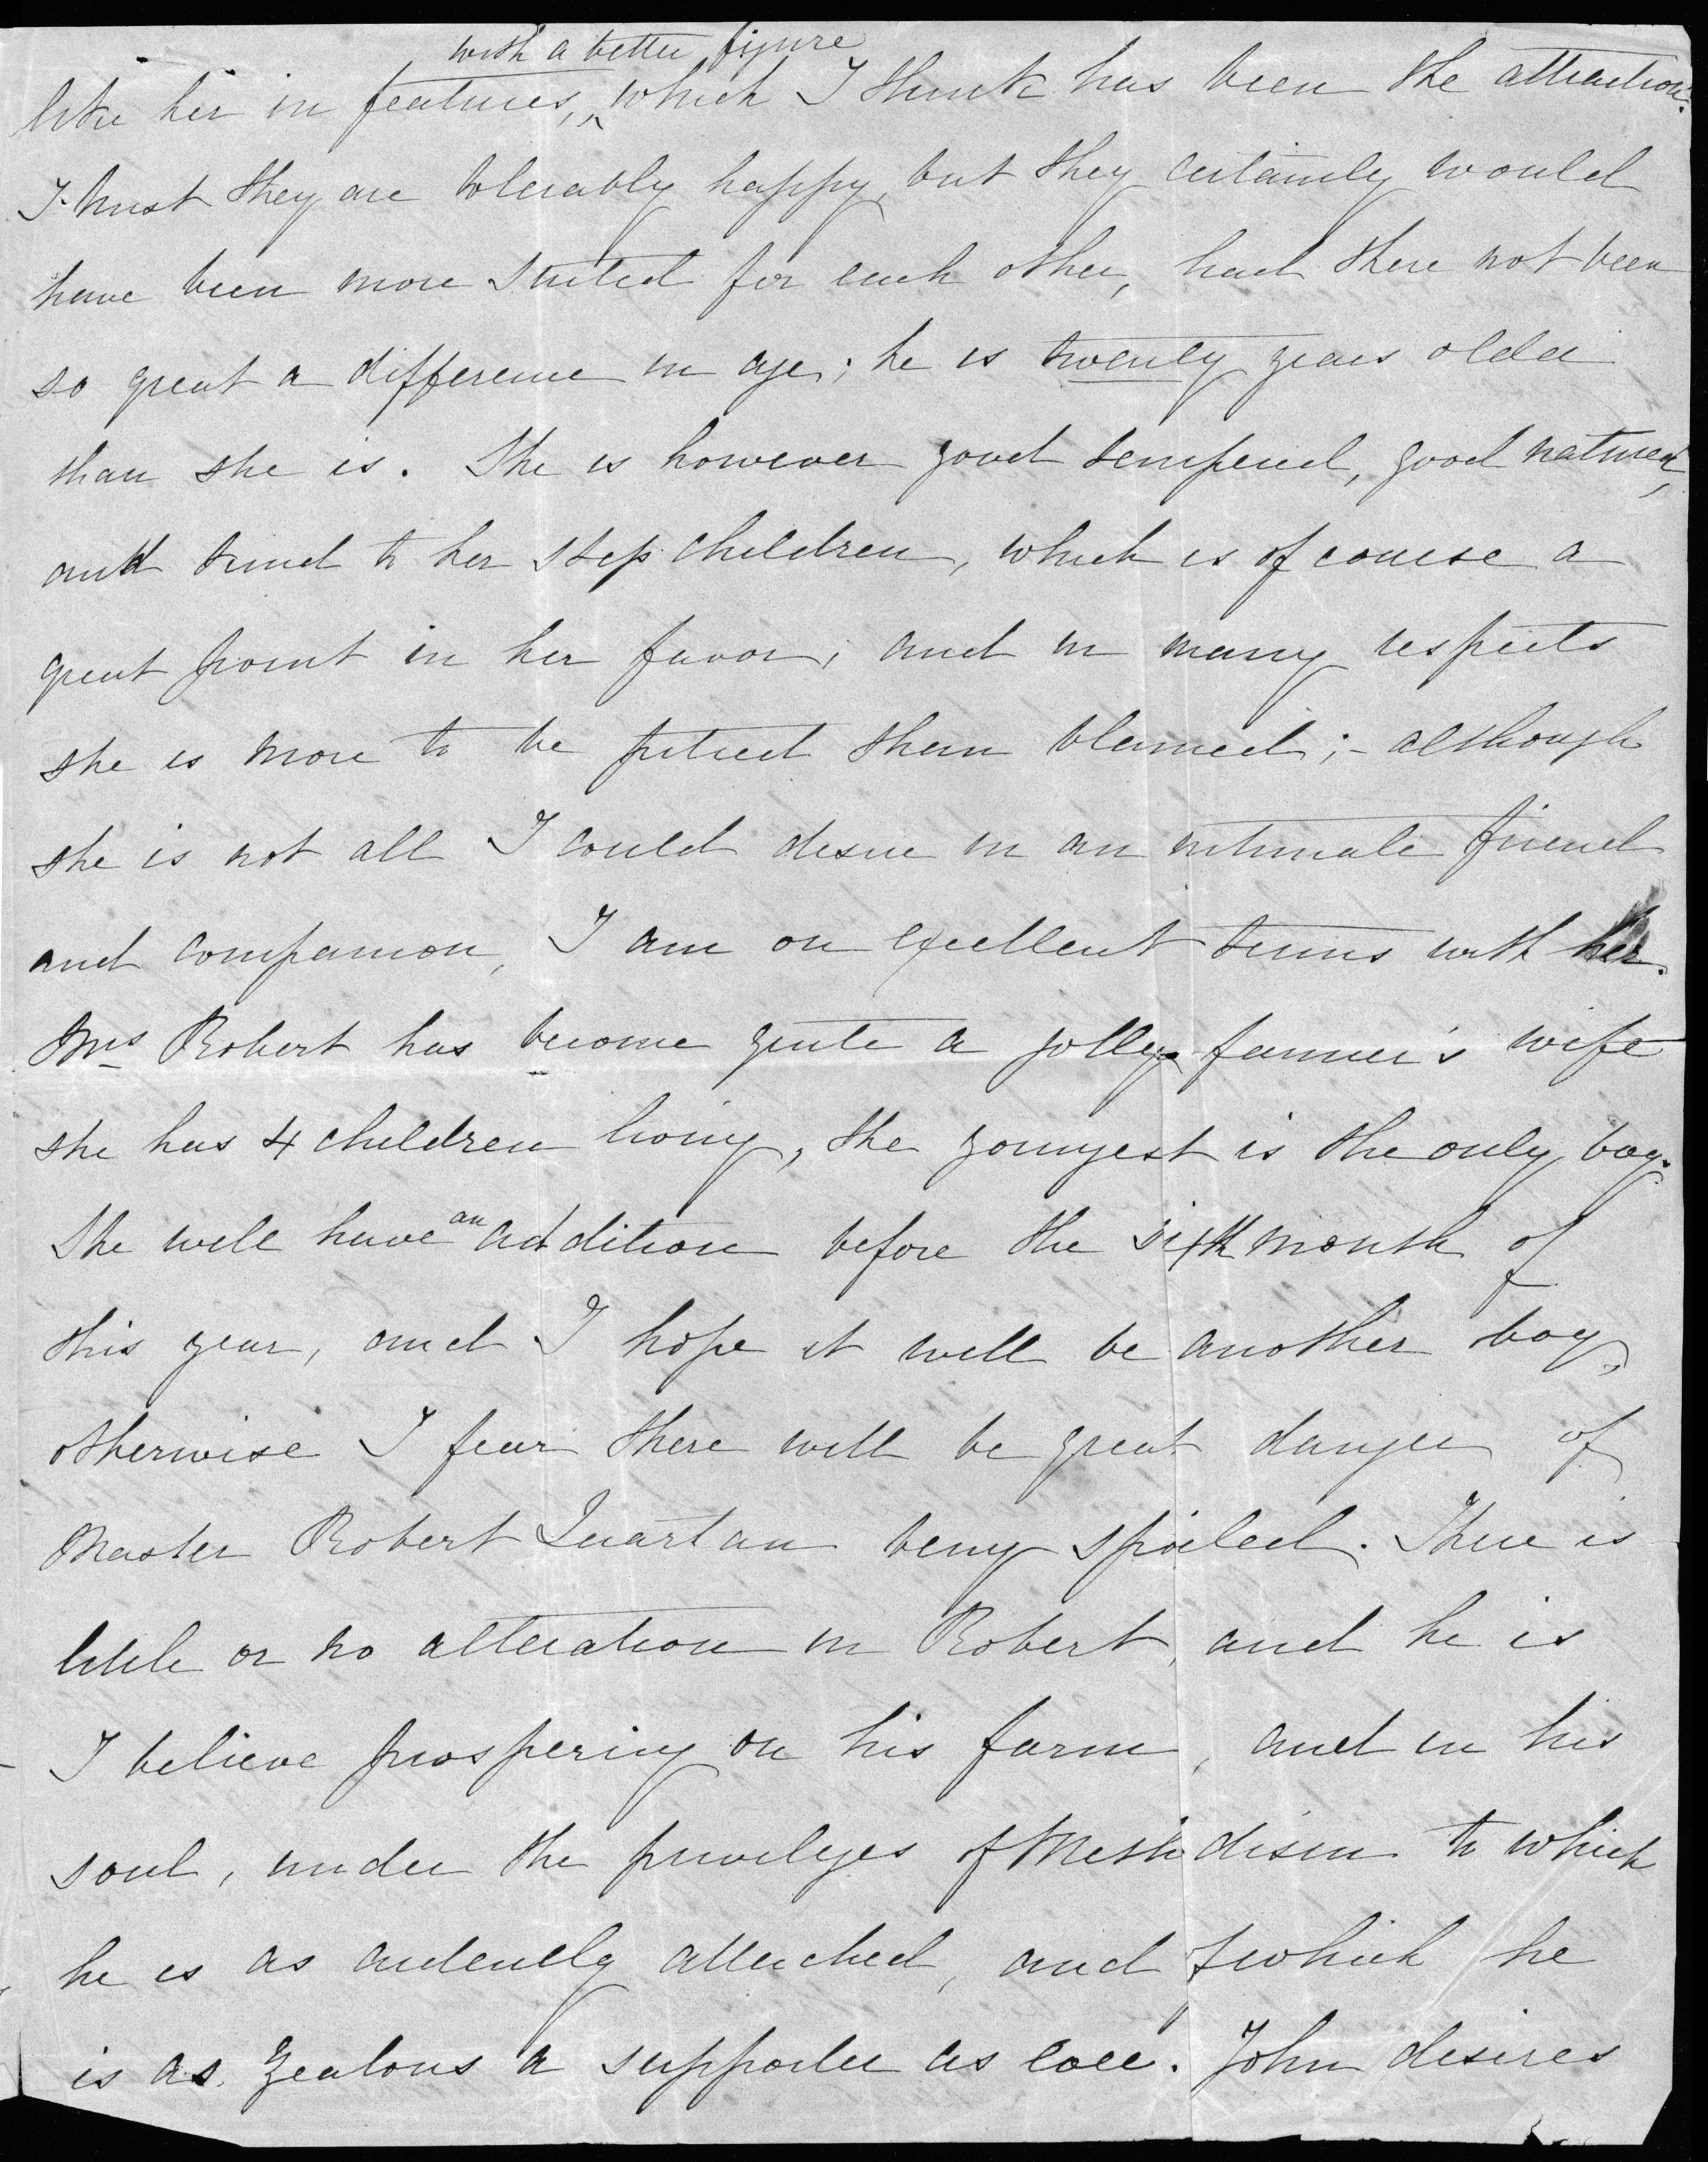 with a better figure
like her in features, ^ which I think has been the attraction.
I trust they are tolerably happy, but they certainly would
have been more suited for each other, had there not been
so great a difference in age; he is twenty years older
than she is. She is however good tempered, good natured,
and kind to her step children, which is of course a
great point in her favor; and in many respects
she is more to be pitied than blamed;- although
she is not all I could desire in an intimate friend
and companion, I am on excellent terms with her.
Mrs Robert has become quite a jolly farmer's wife
she has 4 children living, the youngest is the only boy.
an
She will have addition before the sixth month of
this year, and I hope it will be another boy,
otherwise I fear there will be great danger of
Master Robert Quartan being spoiled. There is
little or no alteration in Robert, and he is
I believe prospering on his farm, and in his
soul, under the privileges of Methodism to which
he is as ardently attached, and of which he
is as zealous a supporter as ever. John desires